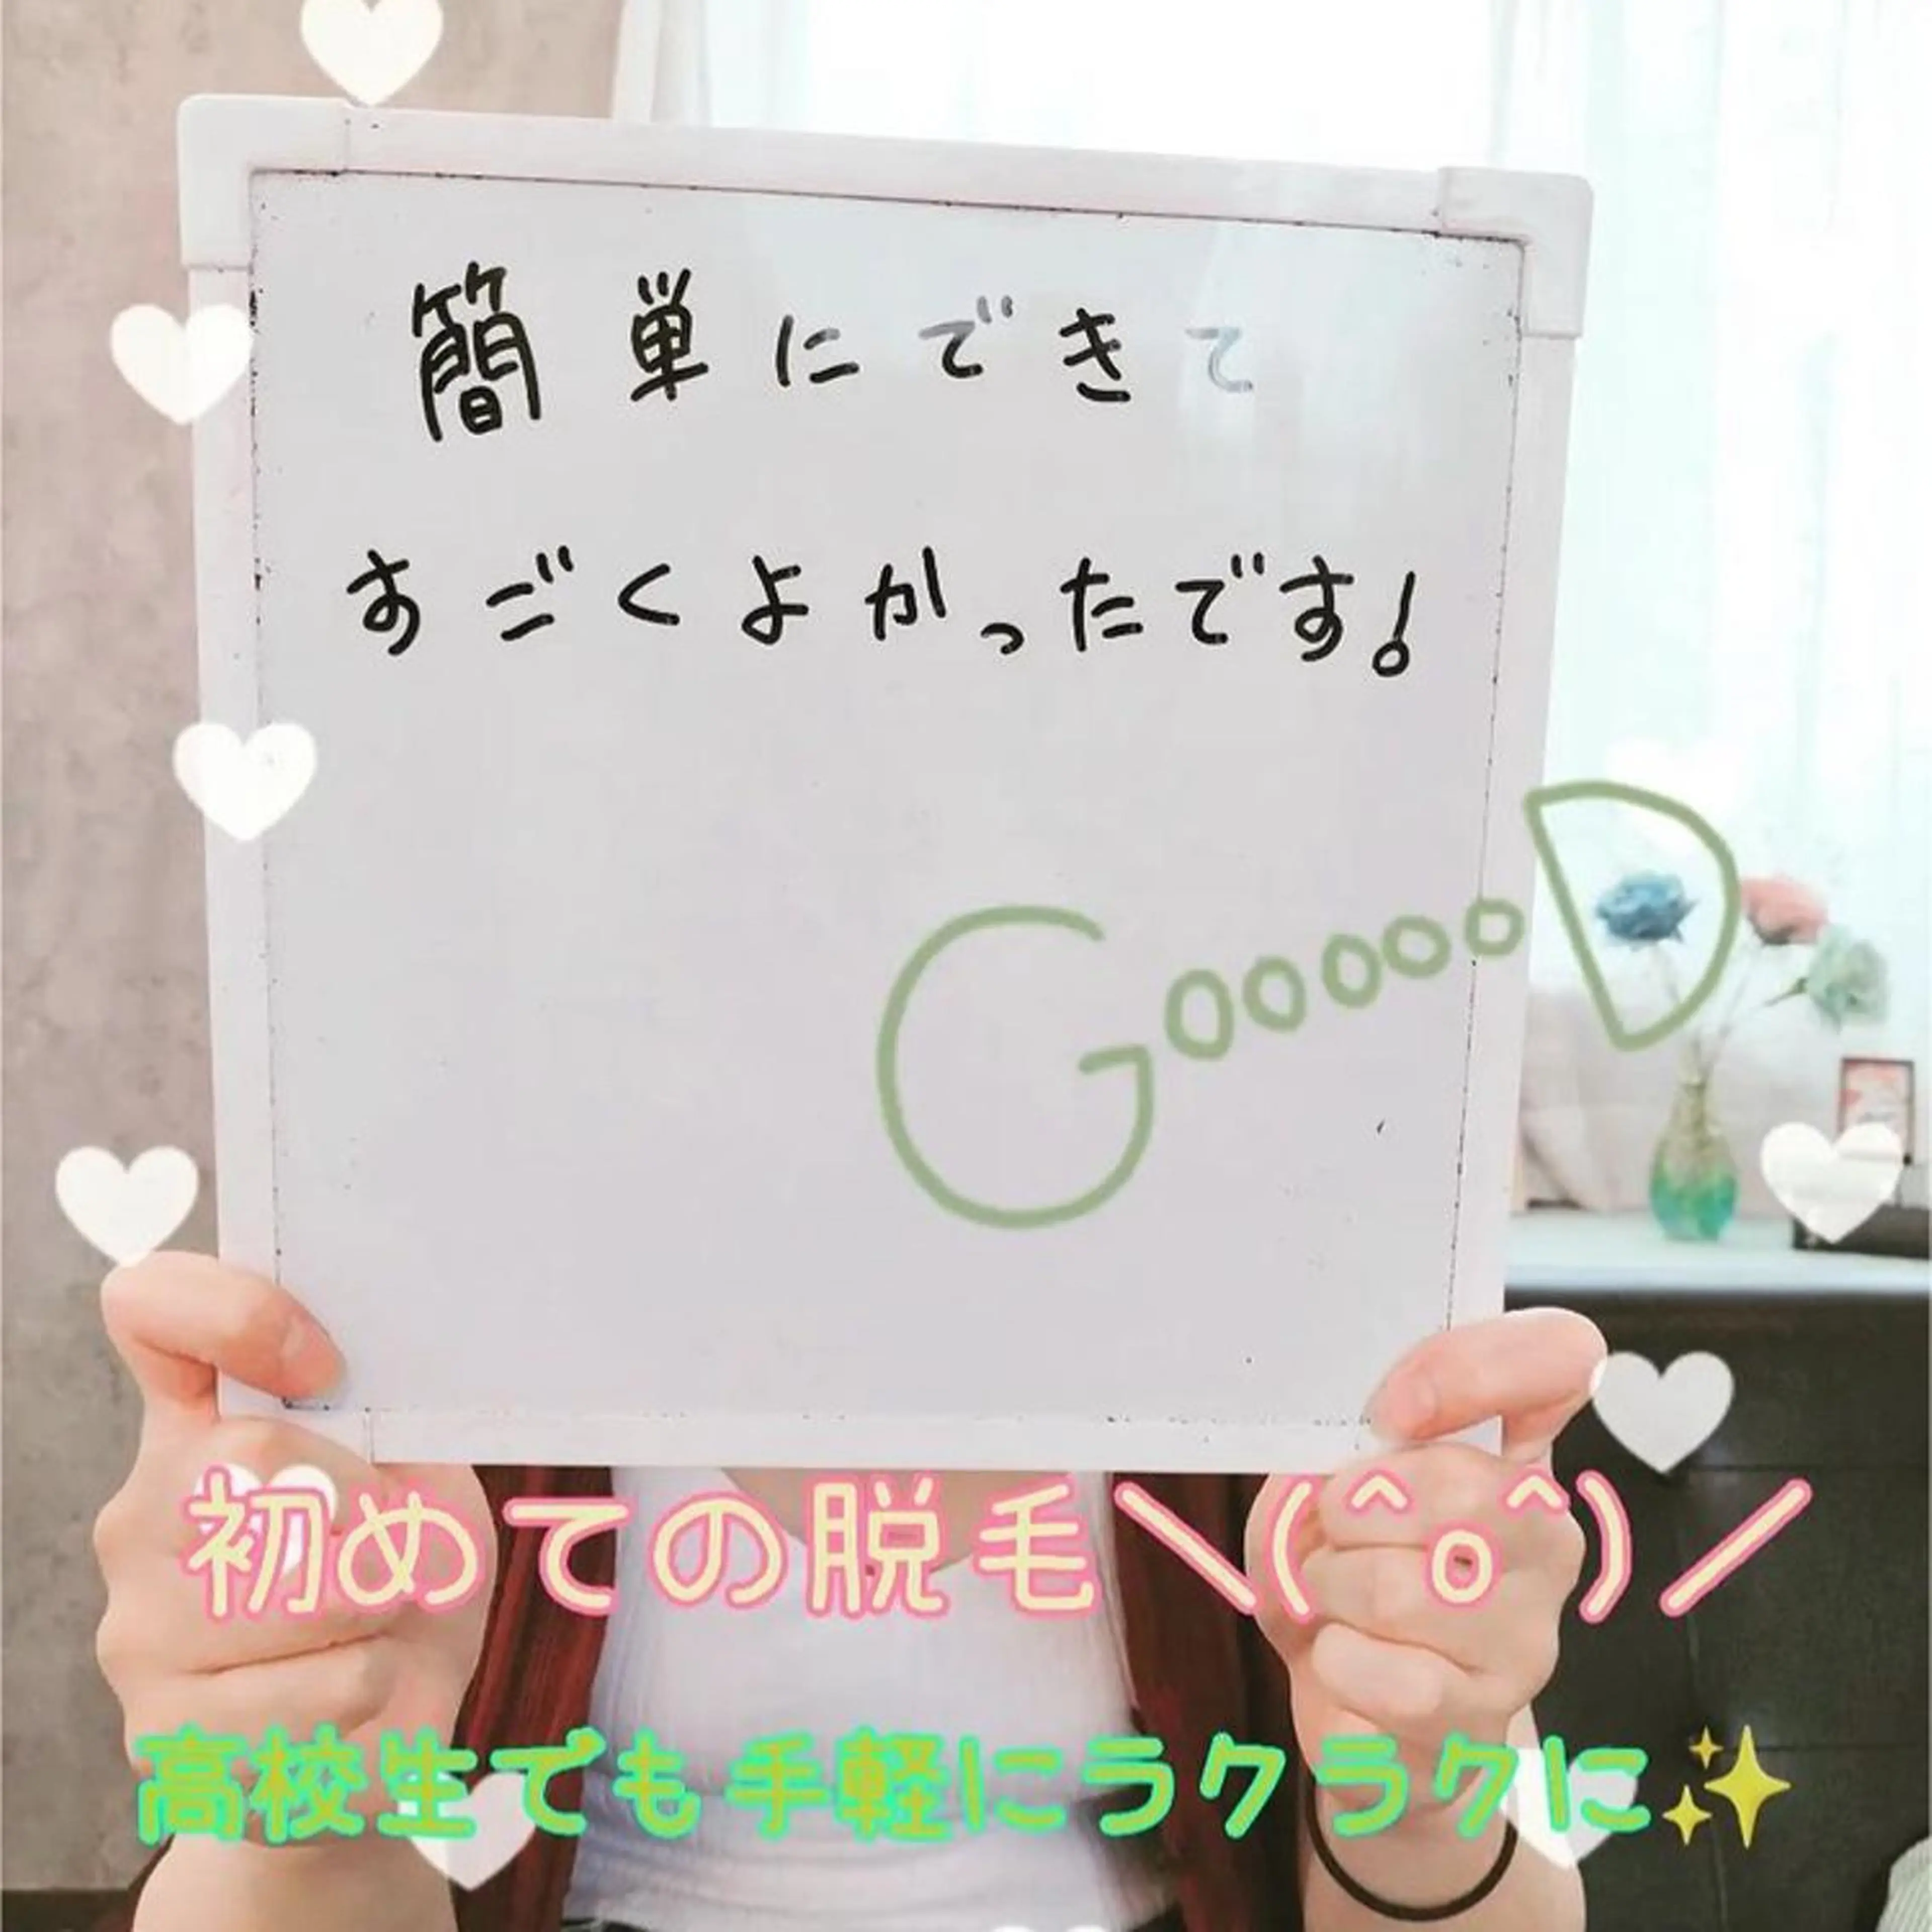 簡単にできて
すごくよかったです!
GoooooD
初めての脱毛\(^o^)/
高校生でも手軽にラクラクに✨